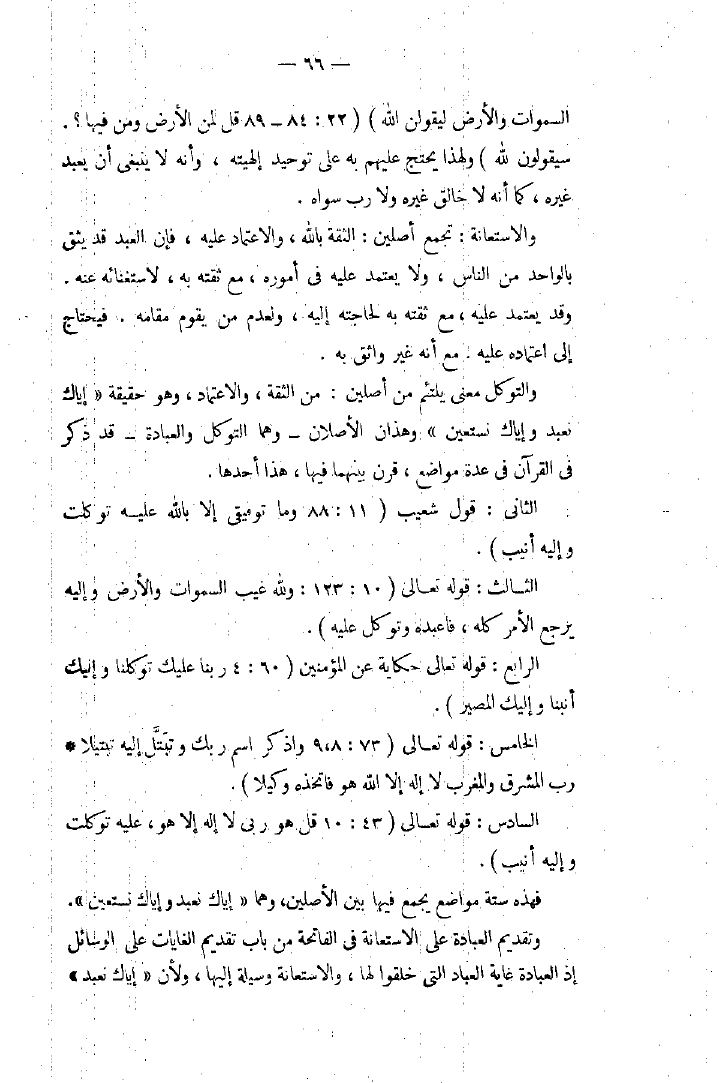 — ٦٦ —
السموات والأرض ليقولن الله ) ( ٢٢ : ٨٤ – ٨٩ قل لمن الأرض ومن فيها ؟ .
سيقولون لله ) ولهذا يحتج عليهم به على توحيد إلهيته ، وأنه لا ينبغى أن يعبد
غيره ، كما أنه لا خالق غيره ولا رب سواه .
والاستعانة : تجمع أصلين : الثقة بالله ، والاعتماد عليه ، فإن العبد قد يثق
بالواحد من الناس ، ولا يعتمد عليه فى أموره ، مع ثقته به ، لاستغنائه عنه .
وقد يعتمد عليه ، مع ثقته به لحاجته إليه ، ولعدم من يقوم مقامه . فيحتاج
إلى اعتماده عليه . مع أنه غير واثق به .
والتوكل معنى يلتئم من أصلين : من الثقة ، والاعتماد ، وهو حقيقة « إياك
نعبد وإياك نستعين » وهذان الأصلان – وهما التوكل والعبادة – قد ذكر
فى القرآن فى عدة مواضع ، قرن بينهما فيها ، هذا أحدها .
الثانى : قول شعيب ( ١١ : ٨٨ وما توفيقى إلا بالله عليه توكلت
وإليه أنيب ) .
الثالث : قوله تعالى ( ١٠ : ١٢٣ : ولله غيب السموات والأرض وإليه
يرجع الأمر كله ، فاعبده وتوكل عليه ) .
الرابع : قوله تعالى حكاية عن المؤمنين ( ٦٠ : ٤ ربنا عليك توكلنا وإليك
أنبنا وإليك المصير ) .
الخامس : قوله تعالى ( ٧٣ : ٩،٨ واذكر اسم ربك وتبَتَّل إليه تبتيلا *
رب المشرق والمغرب لا إله إلا الله هو فاتخذه وكيلا ) .
السادس : قوله تعالى ( ٤٣ : ١٠ قل هو ربى لا إله إلا هو ، عليه توكلت
وإليه أنيب ) .
فهذه ستة مواضع يجمع فيها بين الأصلين، وهما « إياك نعبد وإياك نستعين ».
وتقديم العبادة على الاستعانة فى الفاتحة من باب تقديم الغايات على الوسائل
إذ العبادة غاية العباد التى خلقوا لها ، والاستعانة وسيلة إليها ، ولأن « إياك نعبد »